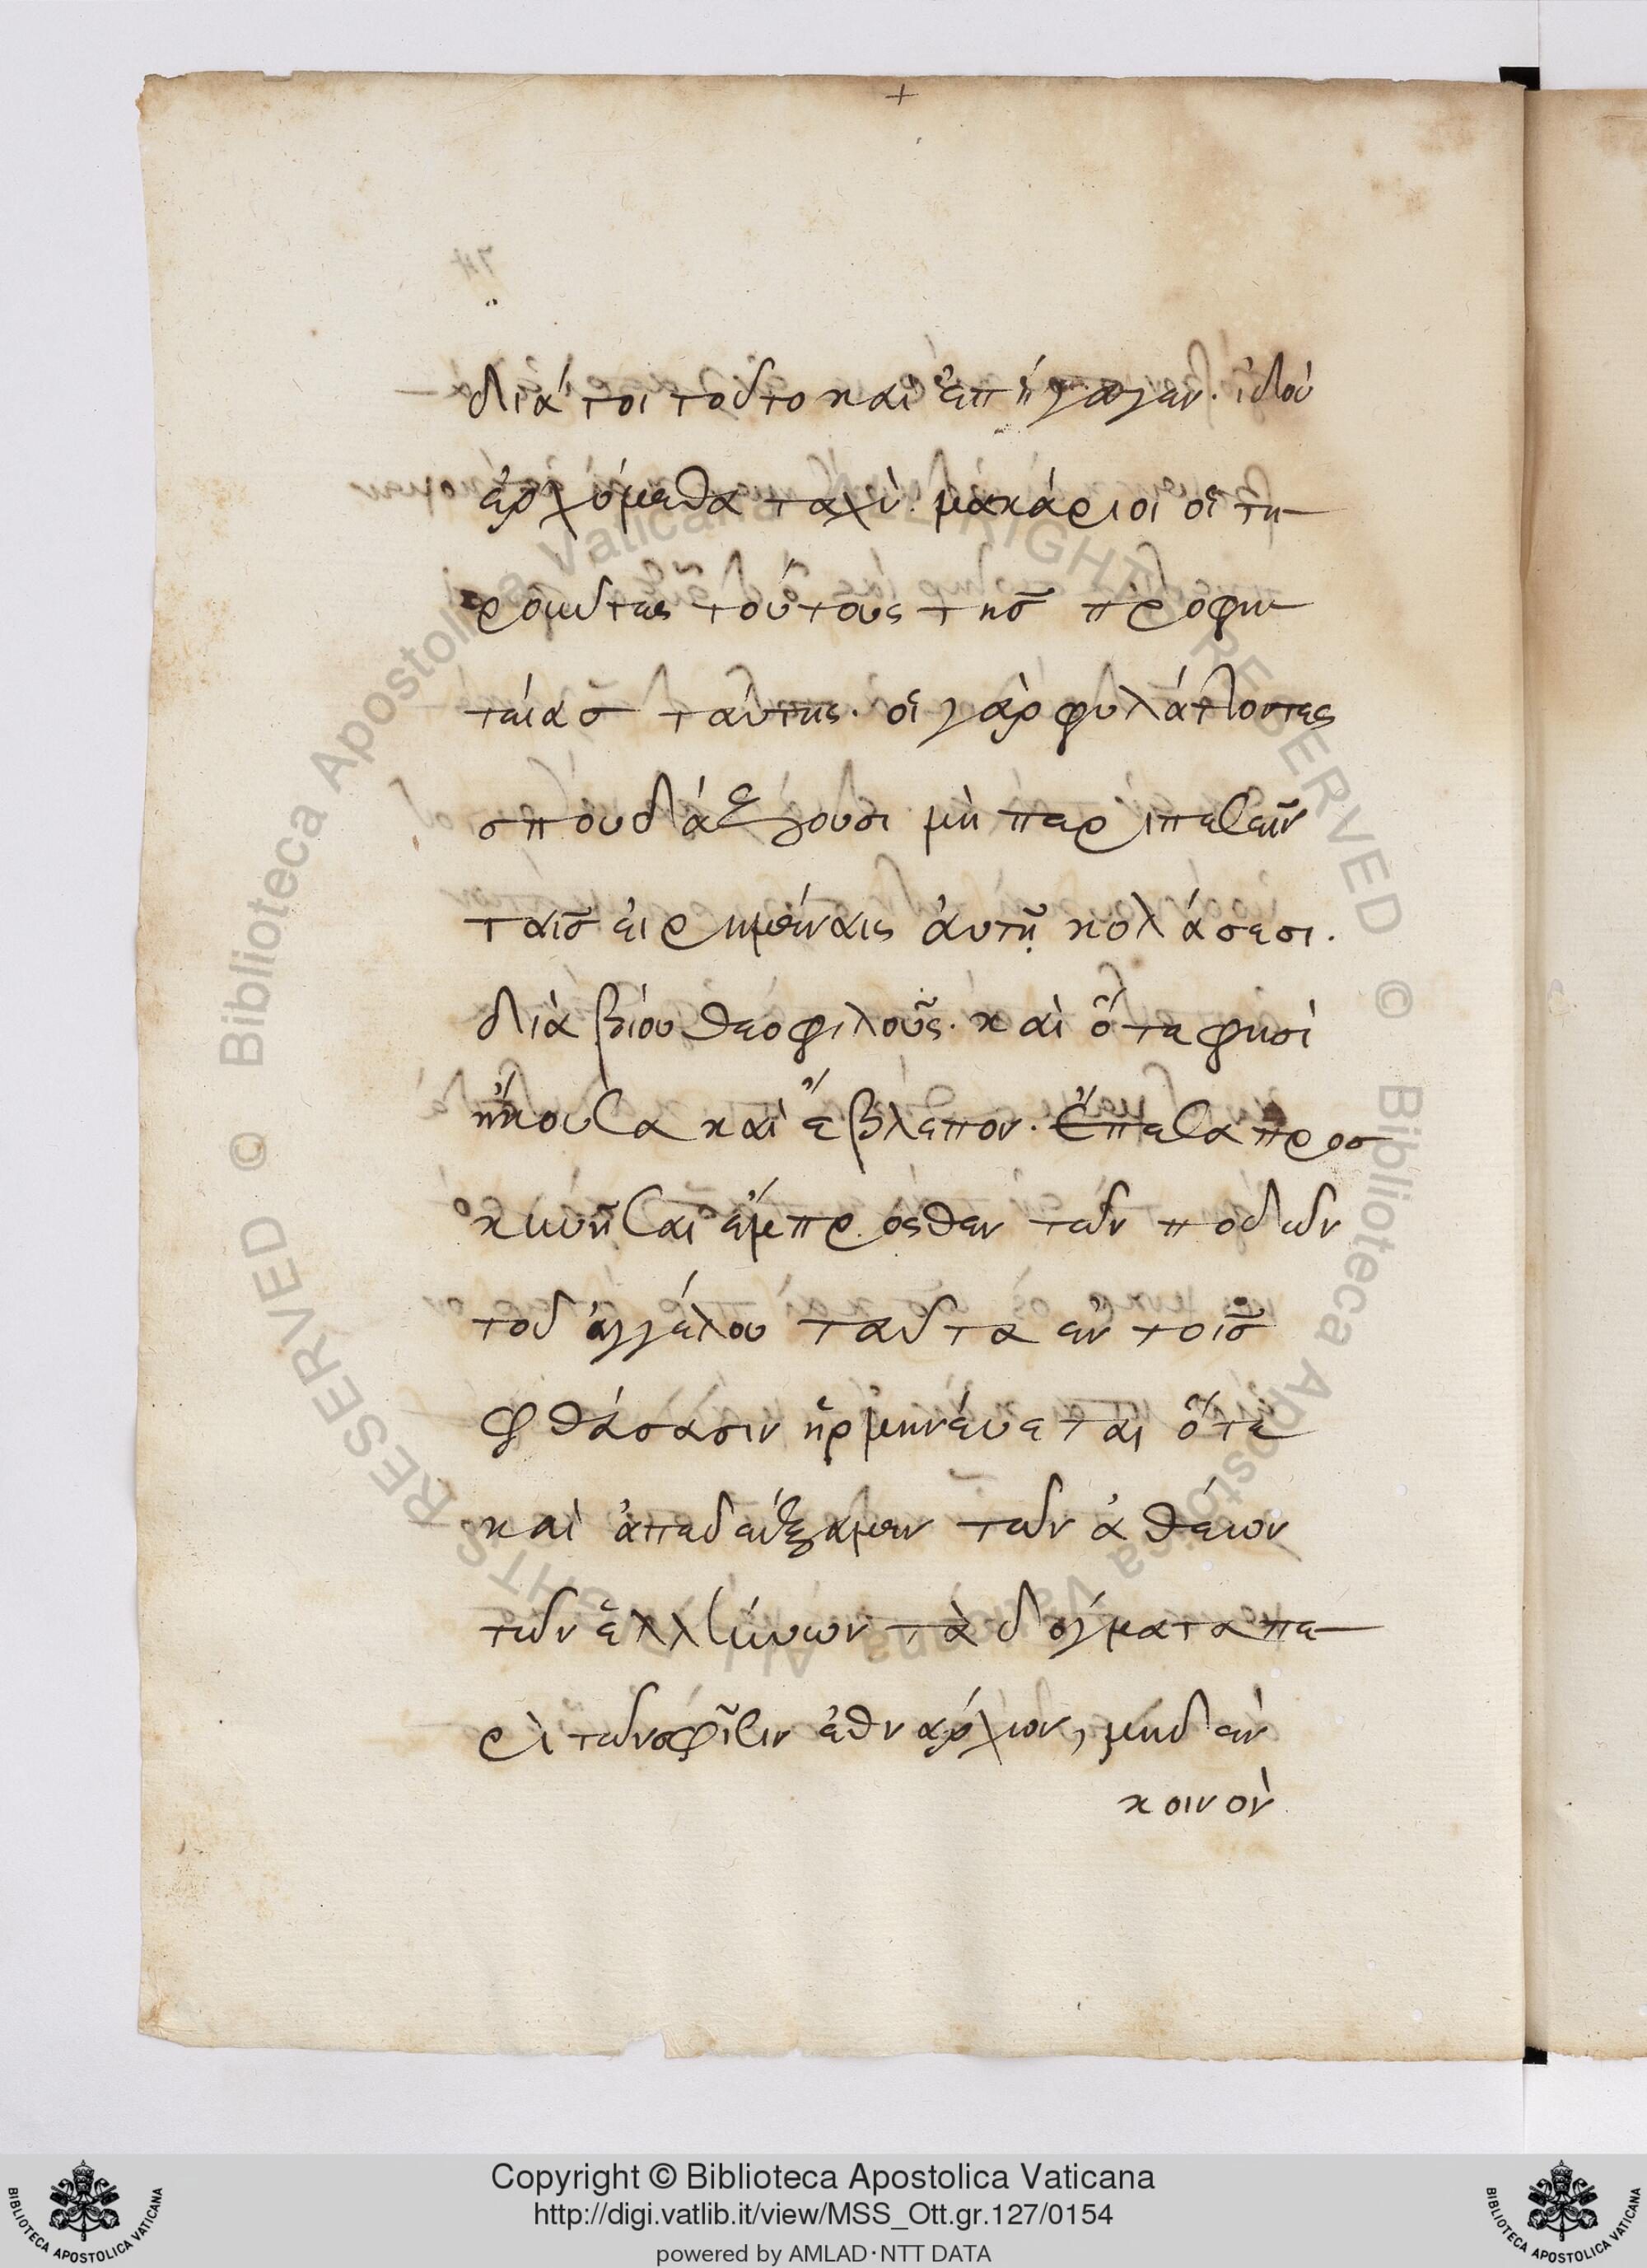 διά τοι τοῦτο καὶ ἐπήγαγεν. ἰδοὺ
ἐρχόμεθα ταχύ. μακάριοι οἱ τη-
ροῦντες τούτους τῆσ προφη-
τείασ ταύτης. οἱ γὰρ φυλάττοντες
σπουδάζουσι μὴ περιπεσεῖν
ταῖσ εἰρημέναις ἀυτῆ κολάσεσι.
διὰ βίου θεοφιλοῦς. καὶ ὅτε φησὶ
ἤκουσα καὶ ἔβλεπον. ἔπεσα προσ
κυνῆσαι ἔμπροσθεν τῶν ποδῶν
τοῦ ἀγγέλου ταῦτα ἐν τοῖσ
φθάσασιν ἡρμηνέυεται ὅτε
καὶ ἀπεδείξαμεν τῶν ἀθέων
τῶν ἑλλήνων τὰ δόγματα πε-
ρὶ τῶν σφίσιν ἐθναρχῶν, μηδὲν
κοινὸν
Copyright © Biblioteca Apostolica Vaticana
http://digi.vatlib.it/view/MSS_Ott.gr.127/0154
powered by AMLAD·NTT DATA
BIBLIOTECA APOSTOLICA VATICANA
BIBLIOTECA APOSTOLICA VATICANA
© Biblioteca Apostolica Vaticana ALL RIGHTS RESERVED
© Biblioteca Apostolica Vaticana ALL RIGHTS RESERVED